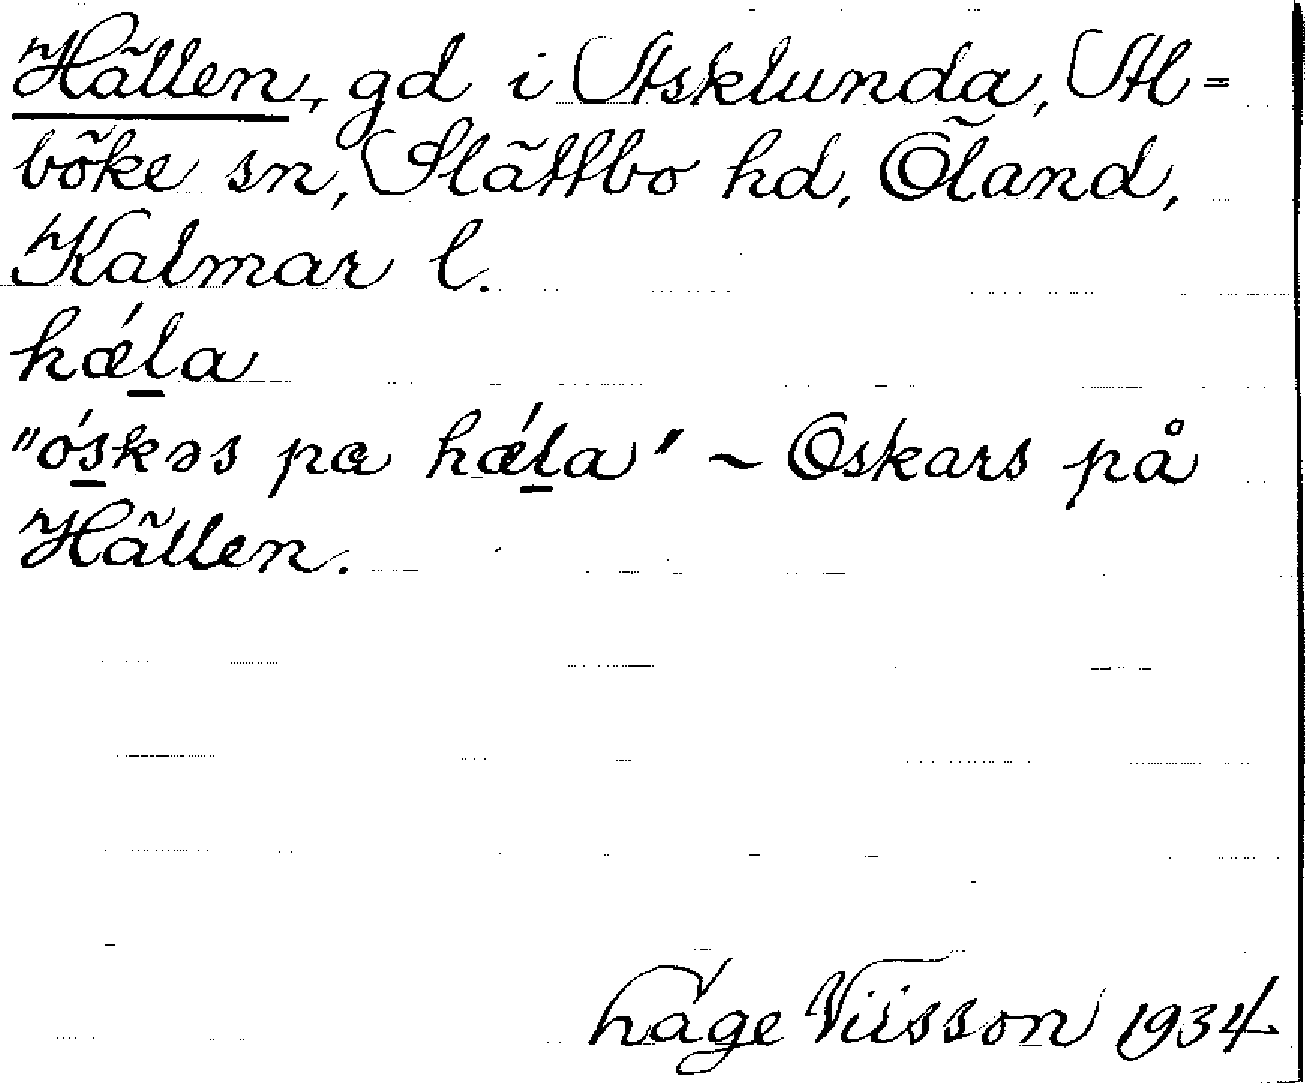 Hällen, gd i Asklunda, Al-
böke sn, Slättbo hd, Öland,
Kalmar l.
hǽl̲a
"ós̲kəs pa hǽl̲a" ~ Oskars på
Hällen.
Nilsson 1934